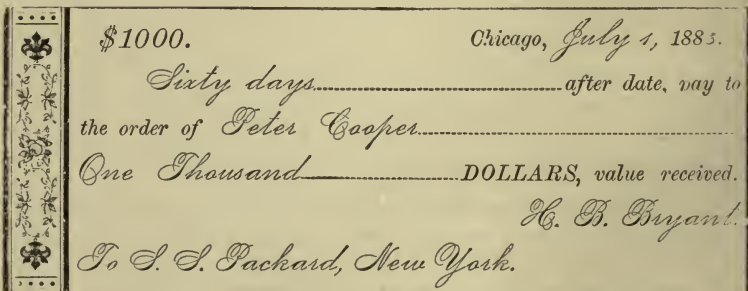 $1000. Chicago, July 1, 1883.
Sixty days after date, pay to
the order of Peter Cooper
One Thousand DOLLARS, value received.
H. B. Bryant.
To S. S. Packard, New York.